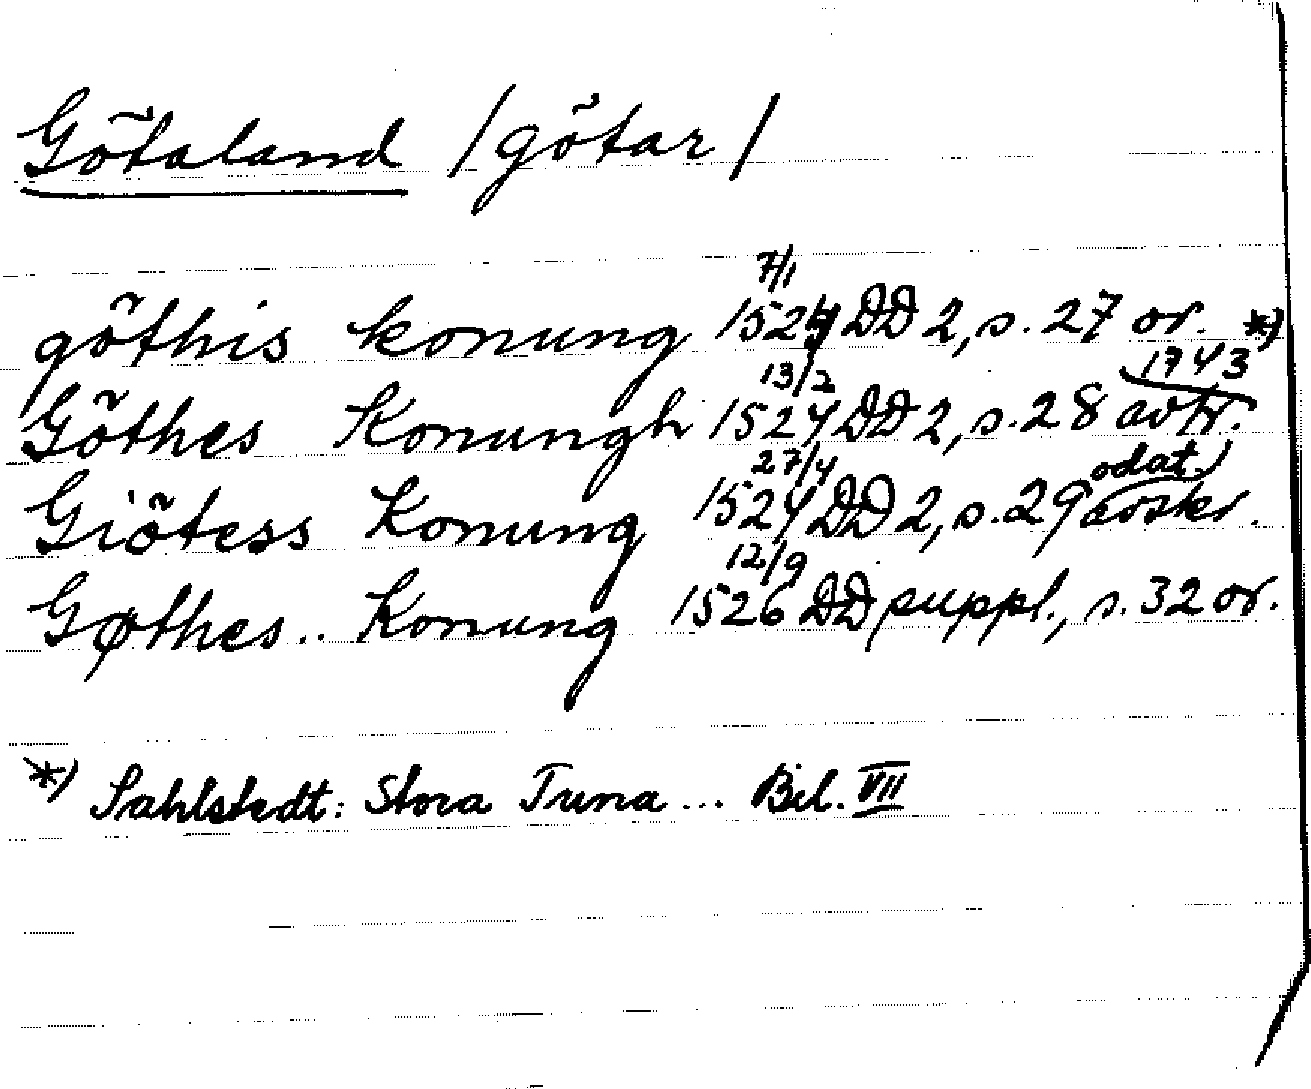 Götaland /götar/
göthis konung 7/1 1524 DD 2, s. 27 or. *)
Göthes Konungh 13/2 1524 DD 2, s. 28 avtr. 1743
Giötess Konung 27/4 1524 DD 2, s. 29 avskr. odat.
Gøthes.. Konung 12/9 1526 DD suppl., s. 32 or.
*) Sahlstedt: Stora Tuna ... Bil. VII